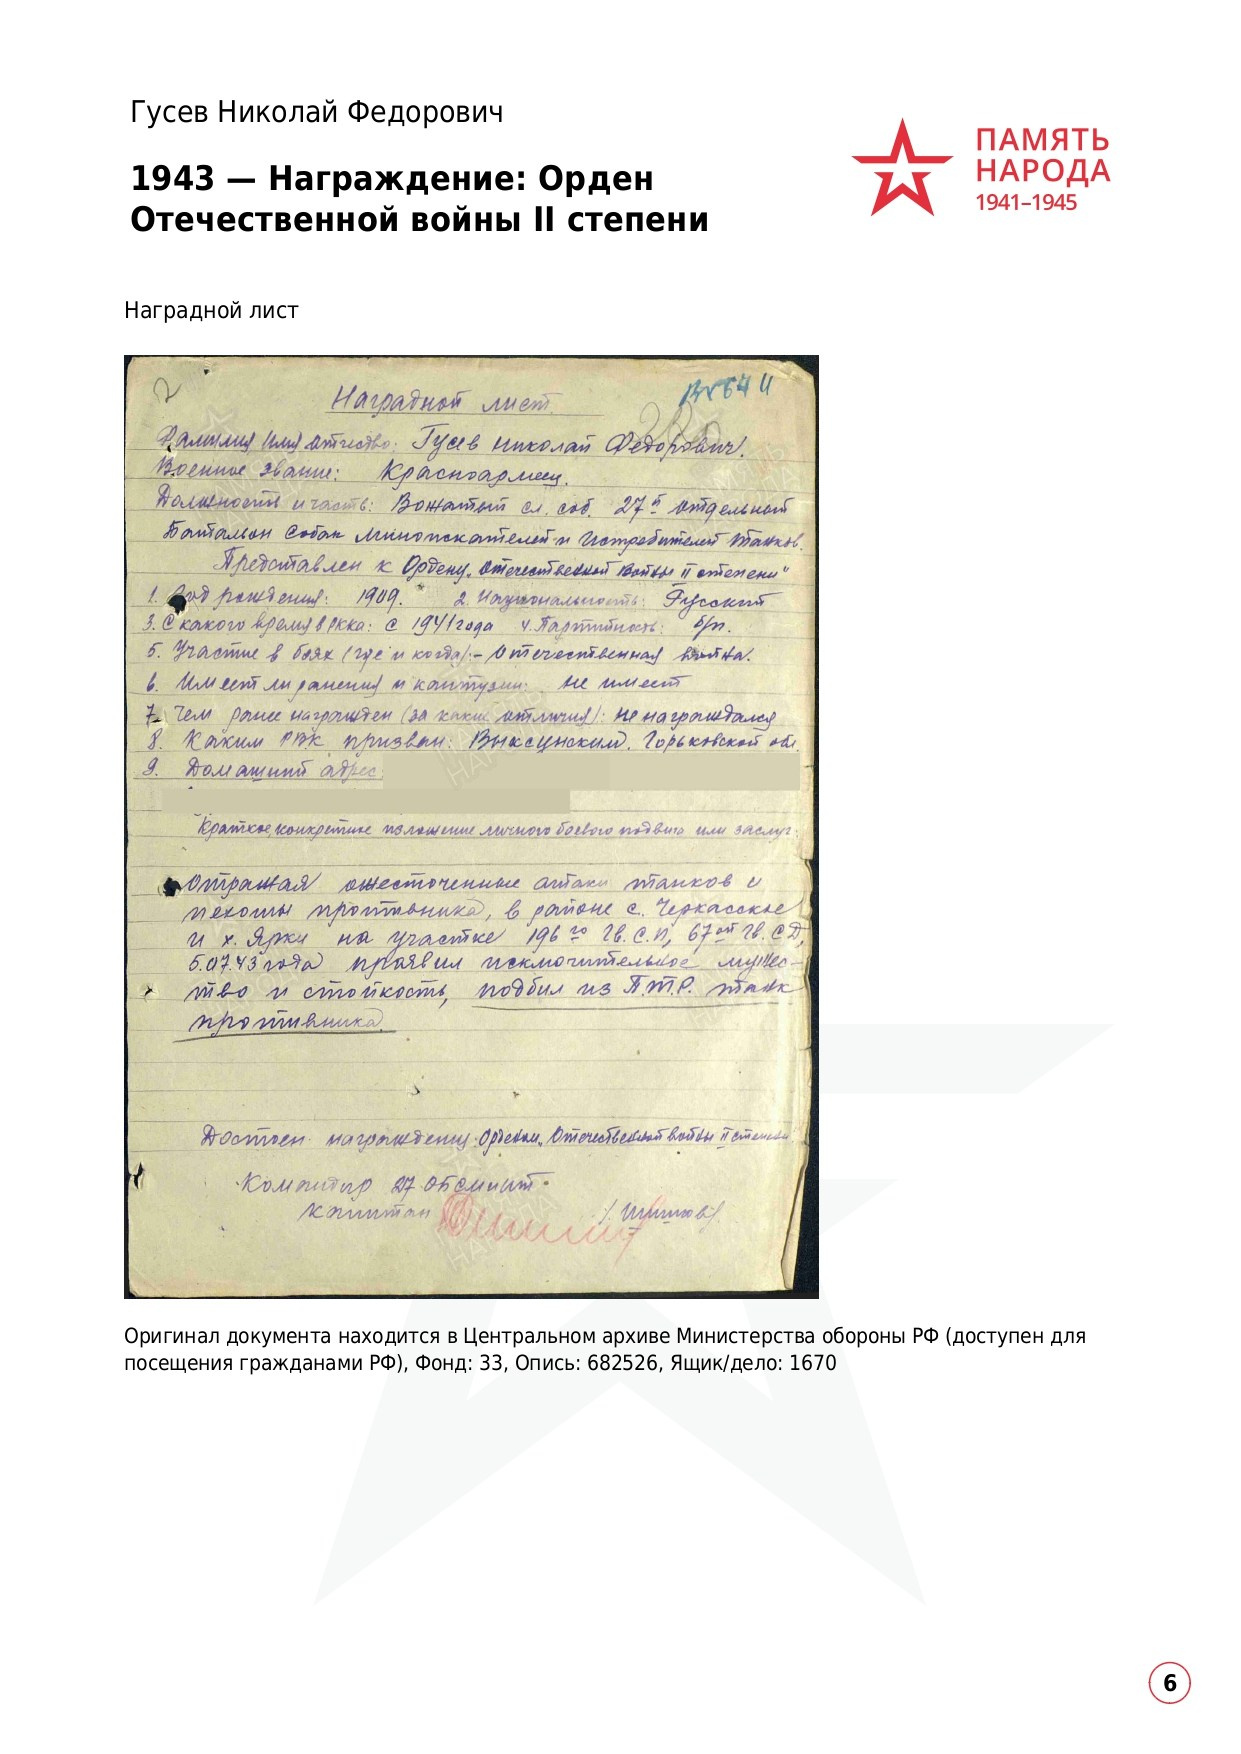 Гусев Николай Федорович
ПАМЯТЬ
НАРОДА
1941–1945
1943 — Награждение: Орден
Отечественной войны II степени
Наградной лист
2
Наградной лист
Фамилия, имя, отчество: Гусев Николай Федорович.
Военное звание: Красноармеец.
Должность и часть: Вожатый сл. соб. 27й отдельный
Батальон собак миноискателей и истребителей танков.
Представлен к Ордену „Отечественной войны II степени"
1. Год рождения: 1909. 2. Национальность: Русский
3. С какого время в РККА: с 1941 года 4. Партийность: б/п.
5. Участие в боях (где и когда):- Отечественная война.
6. Имеет ли ранения и контузии: не имеет
7. Чем ранее награжден (за какие отличия): не награждался
8. Каким РВК призван: Выксунским, Горьковской обл.
9. Домашний адрес:
Краткое, конкретное изложение личного боевого подвига или заслуг:
Отражая ожесточенные атаки танков и
пехоты противника, в районе с. Черкасское
и х. Ярки на участке 196го Гв.С.П, 67ой Гв.СД,
5.07.43 года проявил исключительное мужес-
тво и стойкость, подбил из П.Т.Р. танк
противника.
Достоен награждению Орденом „Отечественной войны II степени
Командир 27 ОБСМИИТ
капитан
Оригинал документа находится в Центральном архиве Министерства обороны РФ (доступен для
посещения гражданами РФ), Фонд: 33, Опись: 682526, Ящик/дело: 1670
6